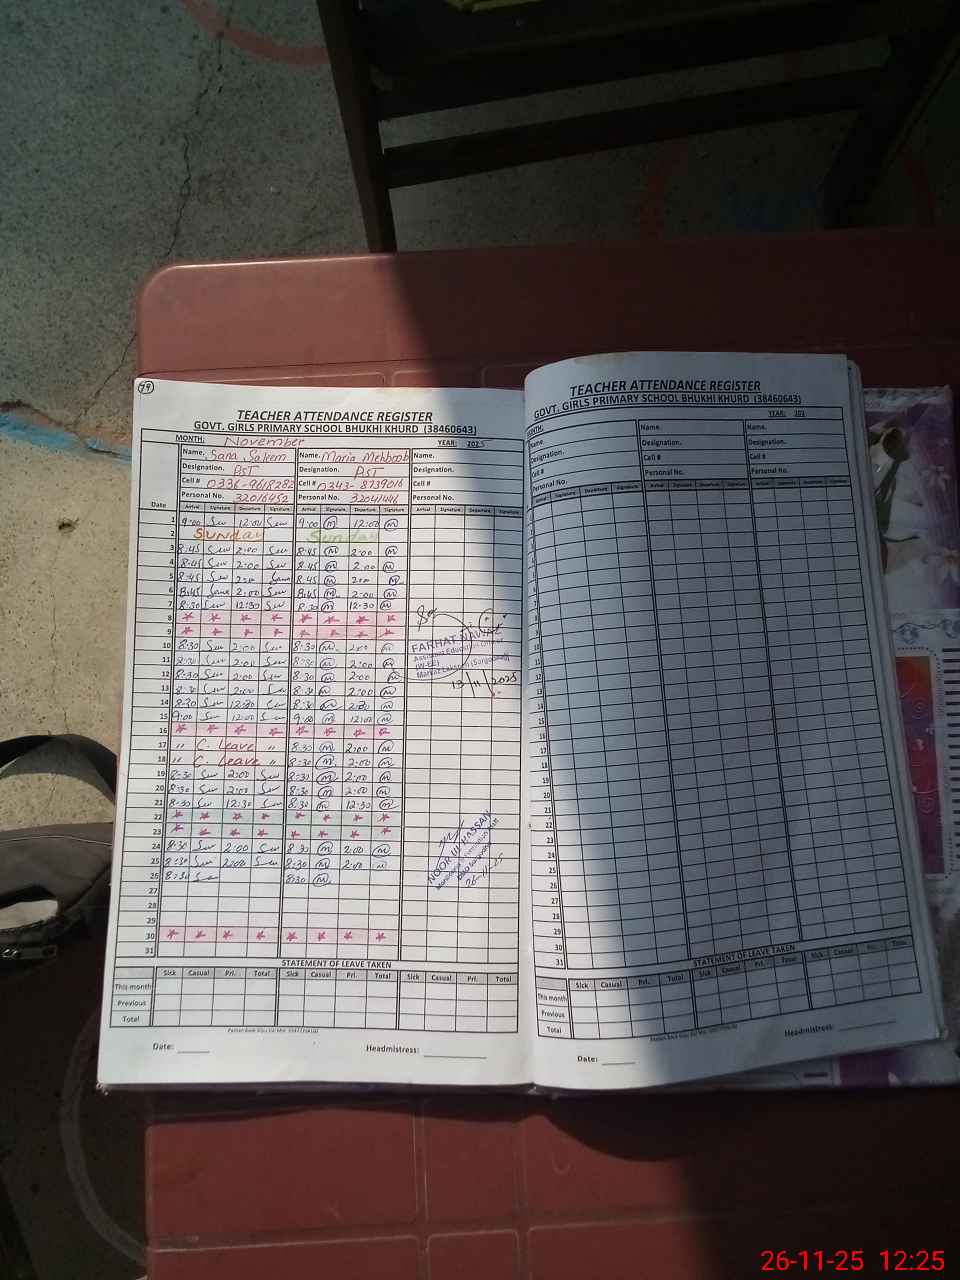 79
TEACHER ATTENDANCE REGISTER
GOVT. GIRLS PRIMARY SCHOOL BHUKHI KHURD (38460643)
MONTH: November YEAR: 2025
Name. Sana Saleem Name. Maria Mehboob Name.
Designation. PST Designation. PST Designation.
Cell # 0336-9618282 Cell # 0343-8739016 Cell #
Personal No. 32016452 Personal No. 32041446 Personal No.
Date Arrival Signature Departure Signature Arrival Signature Departure Signature Arrival Signature Departure Signature
1 9:00 12:00 9:00 M 12:00 M
2 Sunday Sunday
3 8:45 2:00 8:45 M 2:00 M
4 8:45 2:00 8:45 M 2:00 M
5 8:45 2:00 8:45 M 2:00 M
6 8:45 2:00 8:45 M 2:00 M
7 8:30 12:30 8:30 M 12:30 M
8 * * * * * * * *
9 * * * * * * * *
10 8:30 2:00 8:30 M 2:00 M
11 8:30 2:00 8:30 M 2:00 M
12 8:30 2:00 8:30 M 2:00 M
13 8:30 2:00 8:30 M 2:00 M
14 8:30 12:30 8:30 M M
15 9:00 12:00 9:00 M 12:00 M
16 * * * * * * * *
17 " C. Leave " 8:30 M 2:00 M
18 " C. Leave " 8:30 M 2:00 M
19 8:30 2:00 8:30 M 2:00 M
20 8:30 2:00 8:30 M 2:00 M
21 8:30 12:30 8:30 M 12:30 M
22 * * * * * * * *
23 * * * * * * * *
24 8:30 2:00 8:30 M 2:00 M
25 8:30 2:00 8:30 M 2:00 M
26 8:30 8:30 M
27
28
29
30 * * * * * * *
31
FARHAT NAWAZ
Assistant Education Officer
(W-EE)
Markaz (Sargodha)
13/11/2025
NOOR UL HASSAN
26-11-25
STATEMENT OF LEAVE TAKEN
Sick Casual Pri. Total Sick Casual Pri. Total Sick Casual Pri. Total
This month
Previous
Total
Date: ______ Headmistress: ____________
TEACHER ATTENDANCE REGISTER
GOVT. GIRLS PRIMARY SCHOOL BHUKHI KHURD (38460643)
MONTH: YEAR: 202
Name. Name. Name.
Designation. Designation. Designation.
Cell # Cell # Cell #
Personal No. Personal No. Personal No.
Arrival Signature Departure Signature Arrival Signature Departure Signature Arrival Signature Departure Signature
7
8
9
10
11
12
13
14
15
16
17
18
19
20
21
22
23
24
25
26
27
28
29
30
31
STATEMENT OF LEAVE TAKEN
Sick Casual Pri. Total Sick Casual Pri. Total Sick Casual Pri. Total
This month
Previous
Total
Date: ______ Headmistress: ____________
26-11-25 12:25